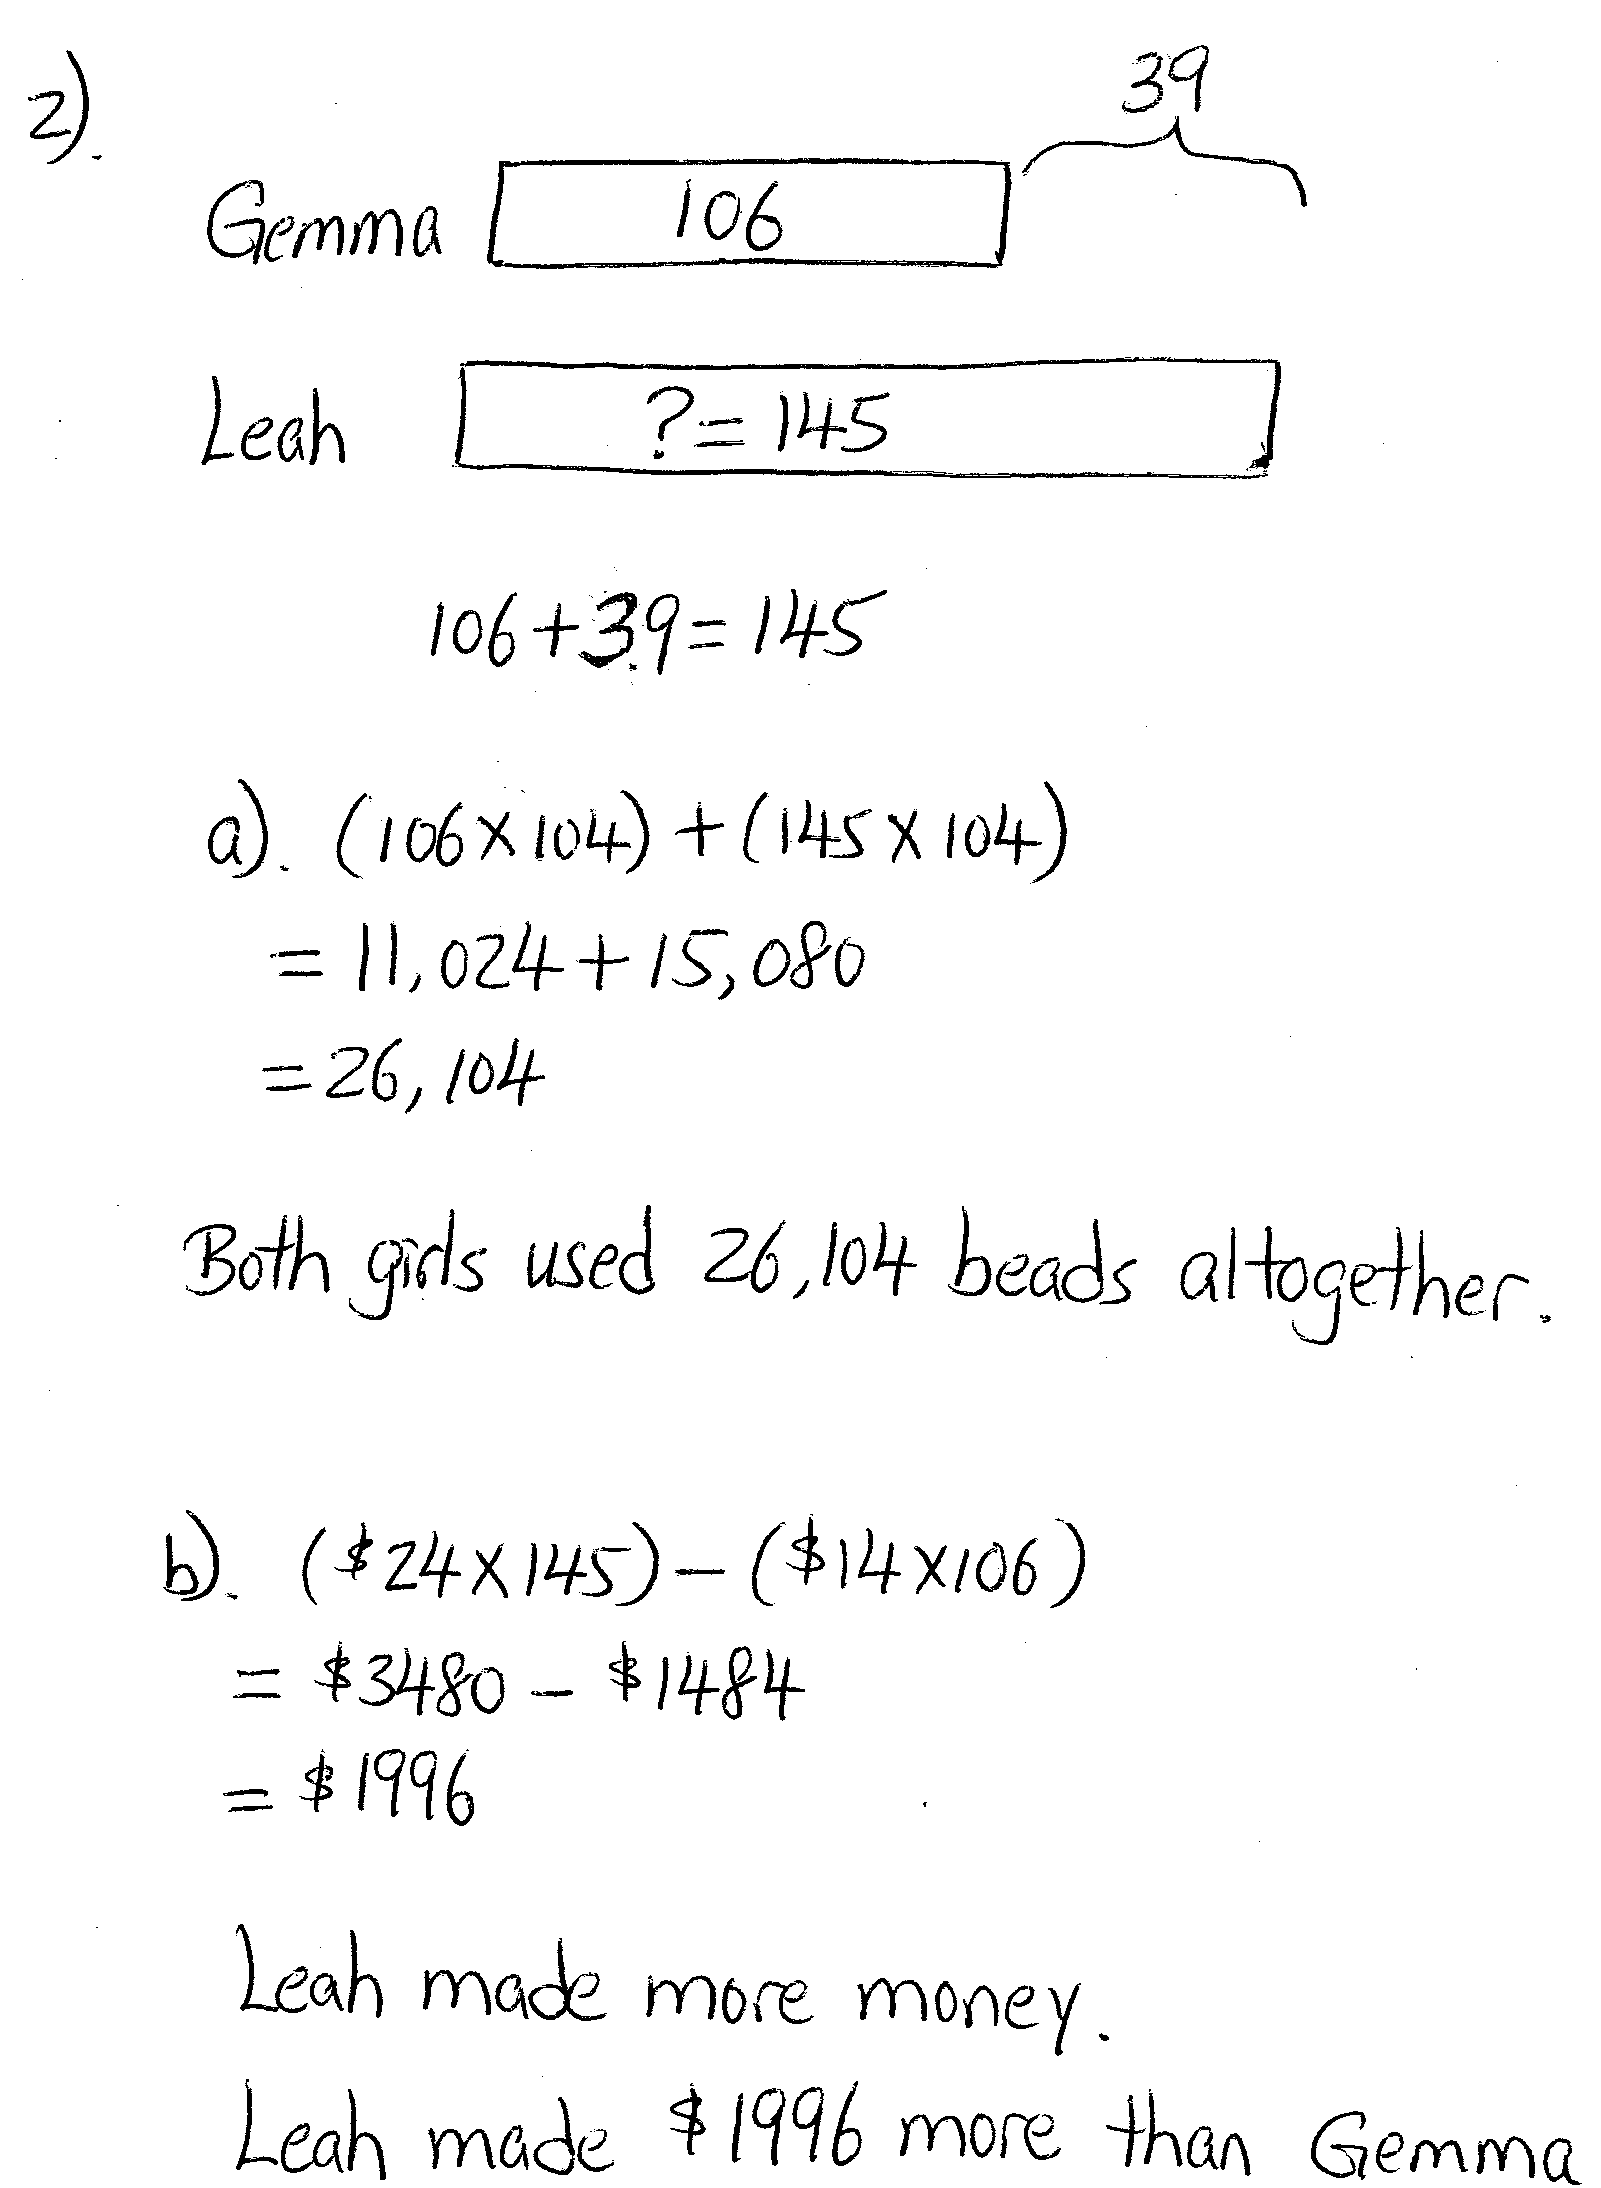 2).
39
Gemma 106
Leah ? = 145
106 + 39 = 145
a). (106 × 104) + (145 × 104)
= 11,024 + 15,080
= 26,104
Both girls used 26,104 beads altogether.
b). ($24 × 145) - ($14 × 106)
= $3480 - $1484
= $1996
Leah made more money.
Leah made $1996 more than Gemma